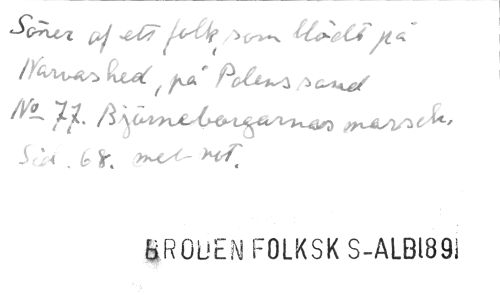 Söner af ett folk, som blödt på
Narvashed, på Polens sand
No 77. Björneborgarnas marsch.
Sid. 68. mel not.
BRODEN FOLKSK S-ALB1891